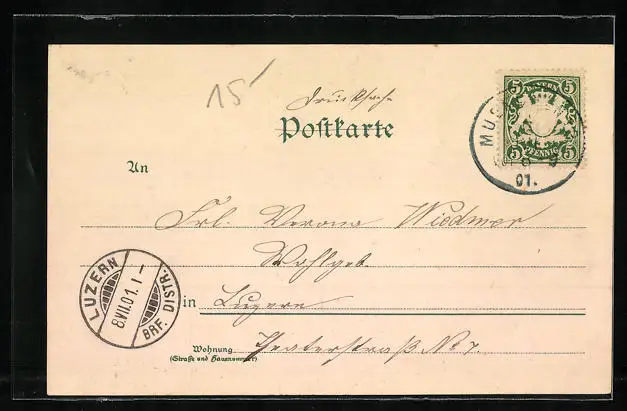 15
Drucksache
Postkarte
5 BAYERN 5
5 PFENNIG 5
01.
An
Frl. Verona Wiedmer
Wohlgeb.
LUZERN
8.VII.01.1-
BRF. DISTR.
in Luzern
Wohnung
(Straße und Hausnummer)
Theaterstraß No 7.